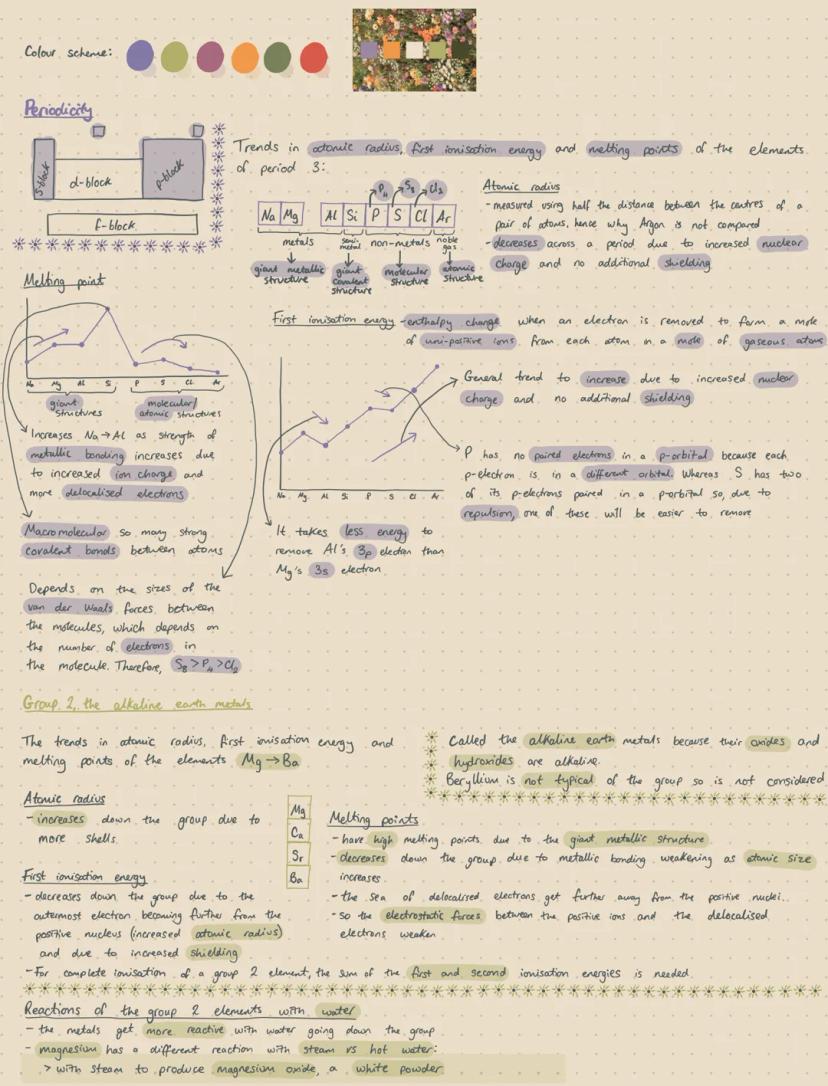 Colour scheme:
Periodicity
s-block
d-block
p-block
f-block
Trends in atomic radius, first ionisation energy and melting points of the elements
of period 3:
P4 S8 Cl2
Na Mg Al Si P S Cl Ar
metals semi-metal non-metals noble gas
giant metallic structure
giant covalent structure
molecular structure
atomic structure
Atomic radius
- measured using half the distance between the centres of a
pair of atoms, hence why Argon is not compared
- decreases across a period due to increased nuclear
charge and no additional shielding
Melting point
Na Mg Al Si P S Cl Ar
giant structures
molecular/ atomic structures
Increases Na → Al as strength of
metallic bonding increases due
to increased ion charge and
more delocalised electrons
Macromolecular so many strong
covalent bonds between atoms
Depends on the sizes of the
van der Waals forces between
the molecules, which depends on
the number of electrons in
the molecule. Therefore, S8 > P4 > Cl2
First ionisation energy - enthalpy change when an electron is removed to form a mole
of uni-positive ions from each atom in a mole of gaseous atoms
Na Mg Al Si P S Cl Ar
General trend to increase due to increased nuclear
charge and no additional shielding
P has no paired electrons in a p-orbital because each
p-electron is in a different orbital. Whereas S has two
of its p-electrons paired in a p-orbital so, due to
repulsion, one of these will be easier to remove
It takes less energy to
remove Al's 3p electron than
Mg's 3s electron
Group 2, the alkaline earth metals
The trends in atomic radius, first ionisation energy and
melting points of the elements Mg → Ba
Called the alkaline earth metals because their oxides and
hydroxides are alkaline.
Beryllium is not typical of the group so is not considered
Atomic radius
- increases down the group due to
more shells
Mg
Ca
Sr
Ba
First ionisation energy
- decreases down the group due to the
outermost electron becoming further from the
positive nucleus (increased atomic radius)
and due to increased shielding
- For complete ionisation of a group 2 element, the sum of the first and second ionisation energies is needed
Melting points
- have high melting points due to the giant metallic structure
- decreases down the group due to metallic bonding weakening as atomic size
increases
- the sea of delocalised electrons get further away from the positive nuclei.
- so the electrostatic forces between the positive ions and the delocalised
electrons weaken
Reactions of the group 2 elements with water
- the metals get more reactive with water going down the group
- magnesium has a different reaction with steam vs hot water:
> with steam to produce magnesium oxide, a white powder